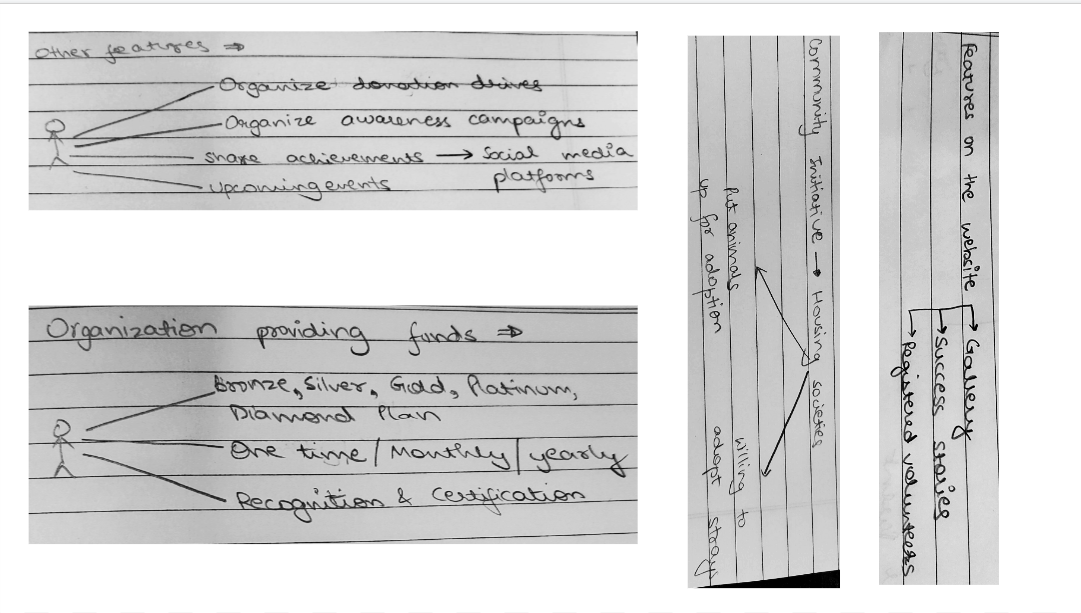 Other features ⇒
Organize donation drives
Organize awareness campaigns
Share achievements → Social media
platforms
Upcoming events
Organization providing funds ⇒
Bronze, Silver, Gold, Platinum,
Diamond Plan
One time / Monthly / yearly
Recognition & Certification
Community Initiative → Housing societies
Put animals
up for adoption
willing to
adopt strays
Features on the website
Gallery
Success stories
Registered volunteers